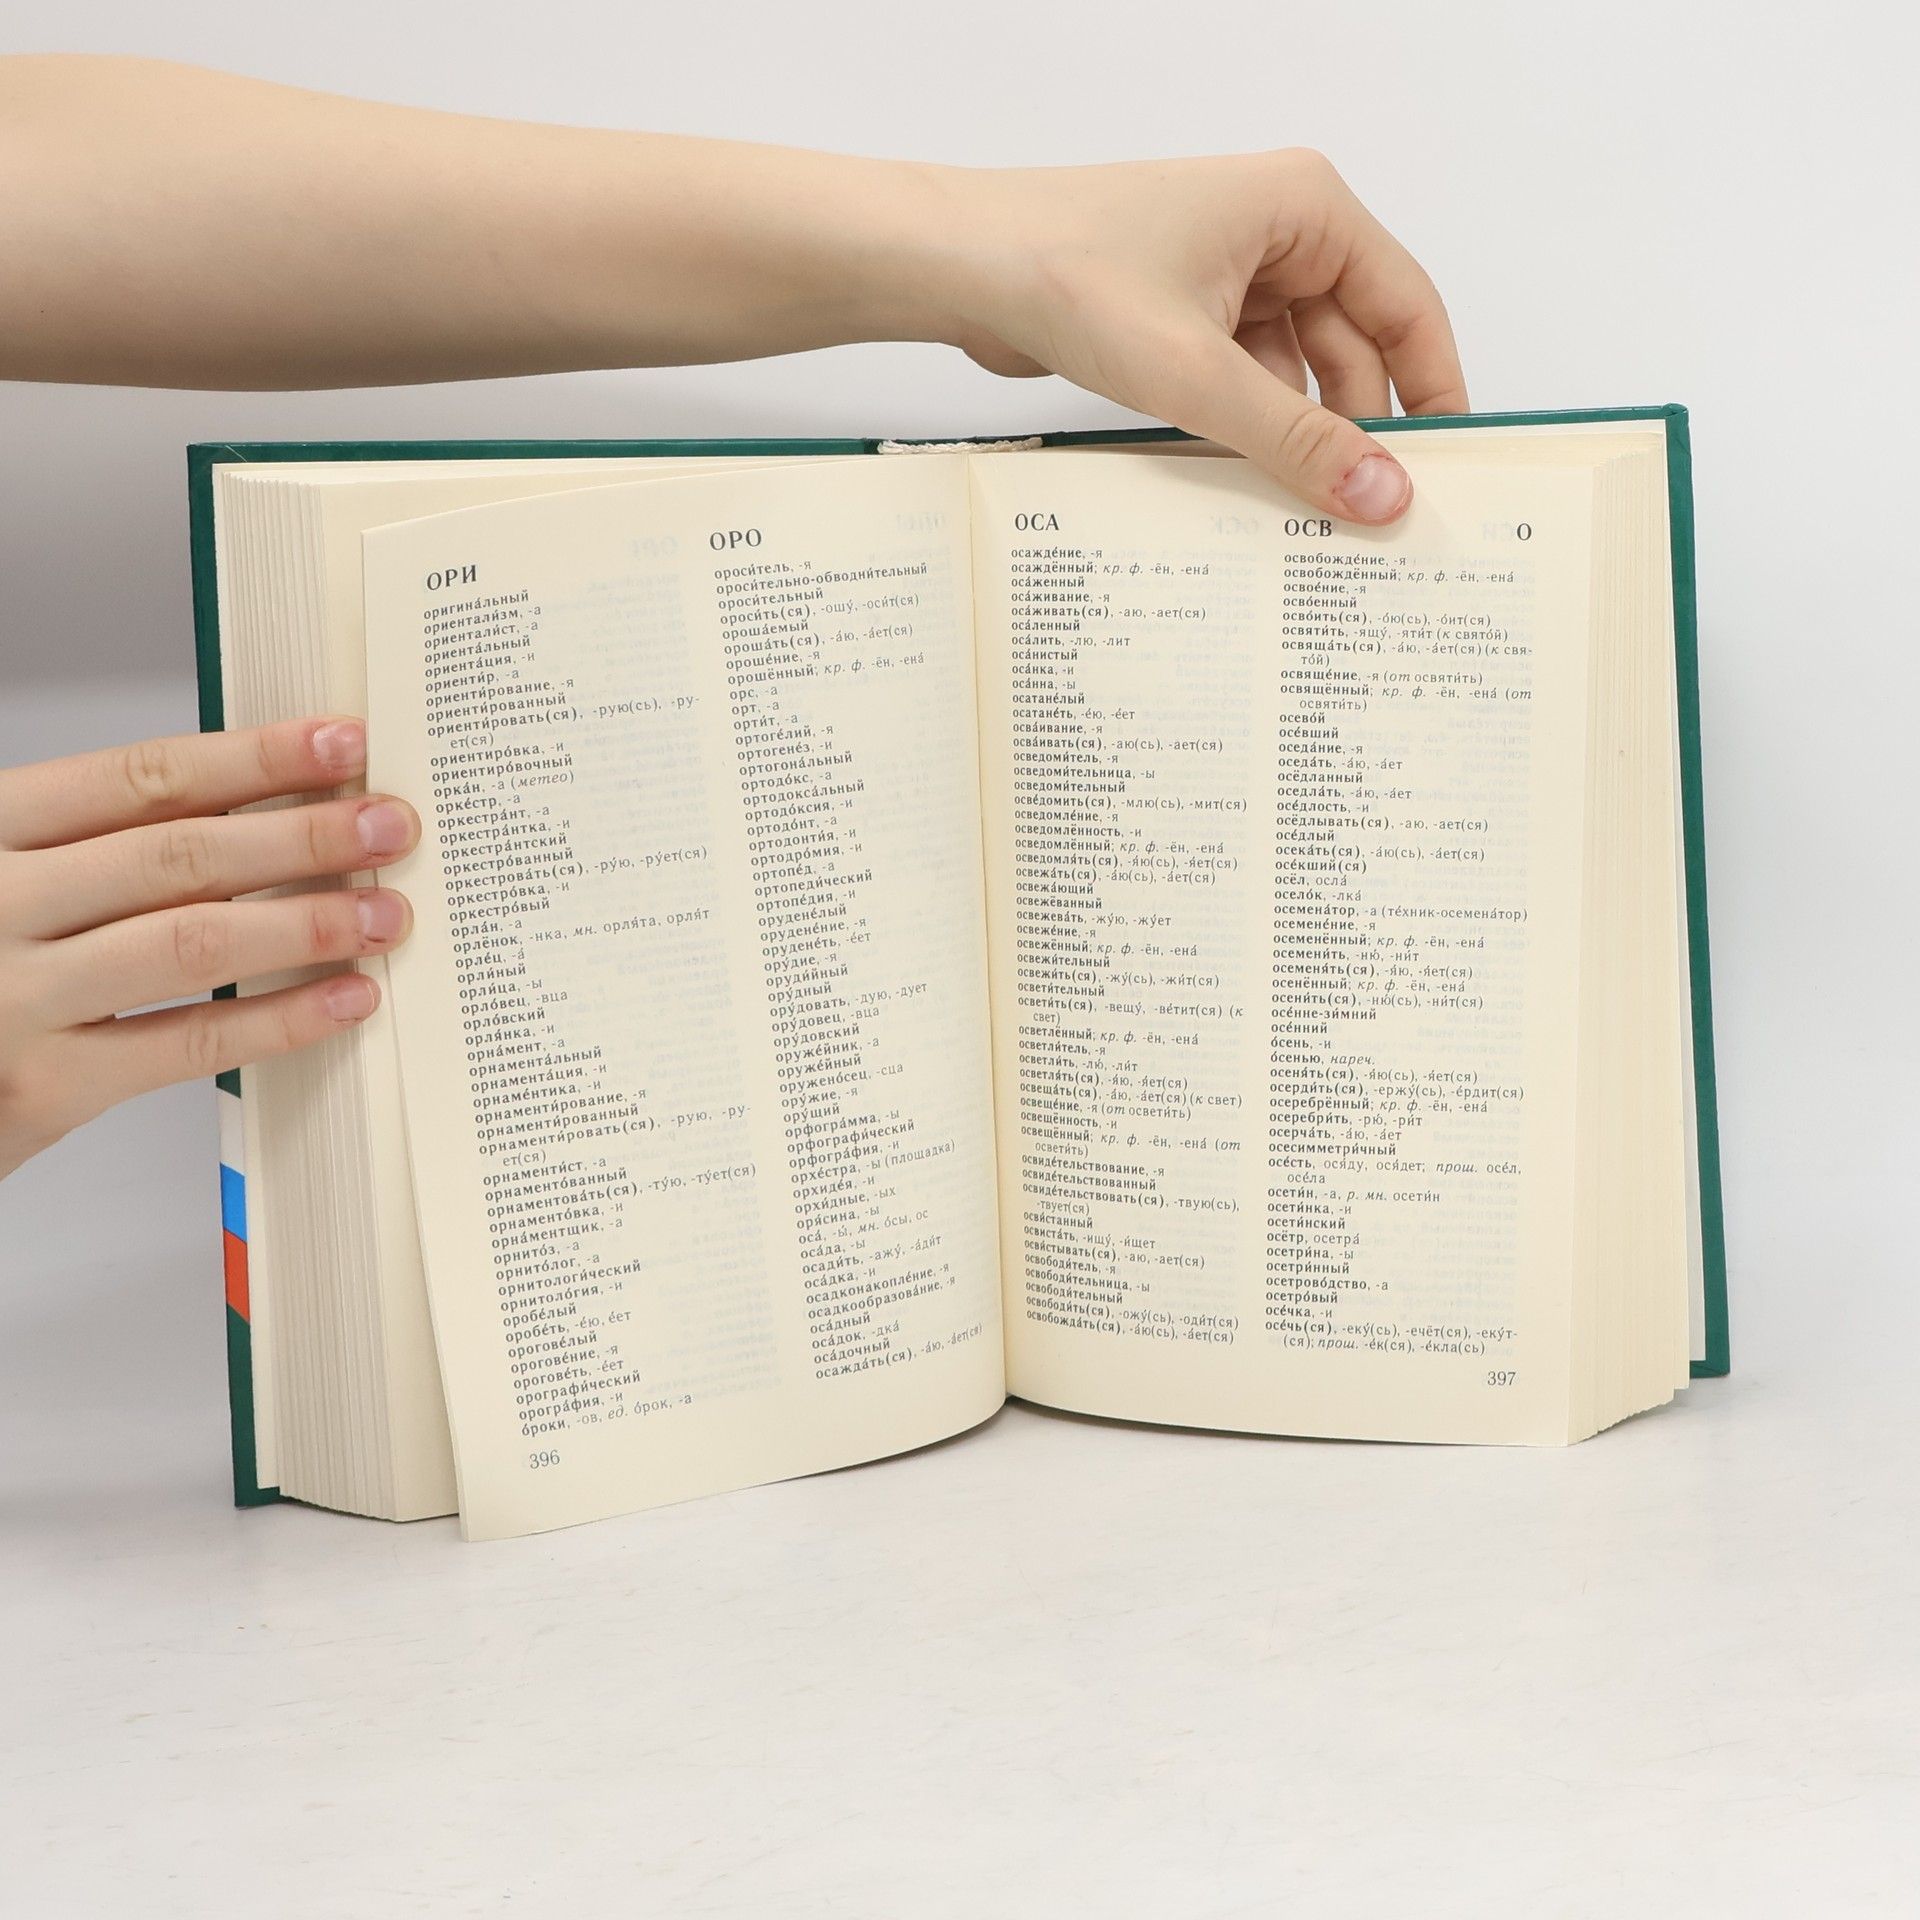 ОРИ
оригина́льный
ориентали́зм, -а
ориентали́ст, -а
ориента́льный
ориента́ция, -и
ориенти́р, -а
ориенти́рование, -я
ориенти́рованный
ориенти́ровать(ся), -рую(сь), -ру-
ет(ся)
ориентиро́вка, -и
ориентиро́вочный
орка́н, -а (метео)
орке́стр, -а
оркестра́нт, -а
оркестра́нтка, -и
оркестра́нтский
оркестро́ванный
оркестрова́ть(ся), -ру́ю, -ру́ет(ся)
оркестро́вка, -и
оркестро́вый
орла́н, -а
орлёнок, -нка, мн. орля́та, орля́т
орле́ц, -а́
орли́ный
орли́ца, -ы
орло́вец, -вца
орло́вский
орля́нка, -и
орна́мент, -а
орнамента́льный
орнамента́ция, -и
орнаме́нтика, -и
орнаменти́рование, -я
орнаменти́рованный
орнаменти́ровать(ся), -рую, -ру-
ет(ся)
орнаменти́ст, -а
орнаменто́ванный
орнаментова́ть(ся), -ту́ю, -ту́ет(ся)
орнаменто́вка, -и
орна́ментщик, -а
орнито́з, -а
орнито́лог, -а
орнитологи́ческий
орнитоло́гия, -и
оробе́лый
оробе́ть, -е́ю, е́ет
орогове́лый
орогове́ние, -я
орогове́ть, -е́ет
орографи́ческий
орогра́фия, -и
о́роки, -ов, ед. о́рок, -а
396
ОРО
ороси́тель, -я
ороси́тельно-обводни́тельный
ороси́тельный
ороси́ть(ся), -ошу́, -оси́т(ся)
ороша́емый
ороша́ть(ся), -а́ю, -а́ет(ся)
ороше́ние, -я
орошённый; кр. ф. -ён, -ена́
орс, -а
орт, -а
орти́т, -а
ортоге́лий, -я
ортогене́з, -и
ортогона́льный
ортодо́кс, -а
ортодокса́льный
ортодо́ксия, -и
ортодо́нт, -а
ортодонти́я, -и
ортодро́мия, -и
ортопе́д, -а
ортопеди́ческий
ортопе́дия, -и
орудене́лый
орудене́ние, -я
орудене́ть, -е́ет
ору́дие, -я
оруди́йный
ору́дный
ору́довать, -дую, -дует
ору́довец, -вца
ору́довский
оруже́йник, -а
оруже́йный
оружено́сец, -сца
ору́жие, -я
ору́щий
орфогра́мма, -ы
орфографи́ческий
орфогра́фия, -и
орхе́стра, -ы (площадка)
орхиде́я, -и
орхи́дные, -ых
оря́сина, -ы
оса́, -ы́, мн. о́сы, ос
оса́да, -ы
осади́ть, -ажу́, -а́ди́т
оса́дка, -и
осадконакопле́ние, -я
осадкообразова́ние, -я
оса́дный
оса́док, -дка́
оса́дочный
осажда́ть(ся), -а́ю, -а́ет(ся)
ОСА
осажде́ние, -я
осаждённый; кр. ф. -ён, -ена́
оса́женный
оса́живание, -я
оса́живать(ся), -аю, -ает(ся)
оса́ленный
оса́лить, -лю, -лит
оса́нистый
оса́нка, -и
оса́нна, -ы
осатане́лый
осатане́ть, -е́ю, -е́ет
осва́ивание, -я
осва́ивать(ся), -аю(сь), -ает(ся)
осведоми́тель, -я
осведоми́тельница, -ы
осведоми́тельный
осве́домить(ся), -млю(сь), -мит(ся)
осведомле́ние, -я
осведомлённость, -и
осведомлённый; кр. ф. -ён, -ена́
осведомля́ть(ся), -я́ю(сь), -я́ет(ся)
освежа́ть(ся), -а́ю(сь), -а́ет(ся)
освежа́ющий
освежёванный
освежева́ть, -жу́ю, -жу́ет
освеже́ние, -я
освежённый; кр. ф. -ён, -ена́
освежи́тельный
освежи́ть(ся), -жу́(сь), -жи́т(ся)
освети́тельный
освети́ть(ся), -вещу́, -ве́тит(ся) (к
свет)
осветлённый; кр. ф. -ён, -ена́
осветли́тель, -я
осветли́ть, -лю́, -ли́т
осветля́ть(ся), -я́ю, -я́ет(ся)
освеща́ть(ся), -а́ю, -а́ет(ся) (к свет)
освеще́ние, -я (от освети́ть)
освещённость, -и
освещённый; кр. ф. -ён, -ена́ (от
освети́ть)
освиде́тельствование, -я
освиде́тельствованный
освиде́тельствовать(ся), -твую(сь),
-твует(ся)
осви́станный
освиста́ть, -ищу́, -и́щет
осви́стывать(ся), -аю, -ает(ся)
освободи́тель, -я
освободи́тельница, -ы
освободи́тельный
освободи́ть(ся), -ожу́(сь), -оди́т(ся)
освобожда́ть(ся), -а́ю(сь), -а́ет(ся)
ОСВ
О
освобожде́ние, -я
освобождённый; кр. ф. -ён, -ена́
освое́ние, -я
осво́енный
осво́ить(ся), -о́ю(сь), -о́ит(ся)
освяти́ть, -ящу́, -яти́т (к свято́й)
освяща́ть(ся), -а́ю, -а́ет(ся) (к свя-
то́й)
освяще́ние, -я (от освяти́ть)
освящённый; кр. ф. -ён, -ена́ (от
освяти́ть)
осево́й
осе́вший
оседа́ние, -я
оседа́ть, -а́ю, -а́ет
осёдланный
оседла́ть, -а́ю, -а́ет
осе́длость, -и
осёдлывать(ся), -аю, -ает(ся)
осе́длый
осека́ть(ся), -а́ю(сь), -а́ет(ся)
осе́кший(ся)
осёл, осла́
осело́к, -лка́
осемена́тор, -а (те́хник-осемена́тор)
осемене́ние, -я
осеменённый; кр. ф. -ён, -ена́
осемени́ть, -ню́, -ни́т
осеменя́ть(ся), -я́ю, -я́ет(ся)
осенённый; кр. ф. -ён, -ена́
осени́ть(ся), -ню́(сь), -ни́т(ся)
осе́нне-зи́мний
осе́нний
о́сень, -и
о́сенью, нареч.
осеня́ть(ся), -я́ю(сь), -я́ет(ся)
осерди́ть(ся), -ержу́(сь), -е́рдит(ся)
осеребрённый; кр. ф. -ён, -ена́
осеребри́ть, -рю́, -ри́т
осерча́ть, -а́ю, -а́ет
осесимметри́чный
осе́сть, ося́ду, ося́дет; прош. осе́л,
осе́ла
осети́н, -а, р. мн. осети́н
осети́нка, -и
осети́нский
осётр, осетра́
осетри́на, -ы
осетри́нный
осетрово́дство, -а
осетро́вый
осе́чка, -и
осе́чь(ся), -еку́(сь), -ечёт(ся), -еку́т-
(ся); прош. -е́к(ся), -е́кла(сь)
397